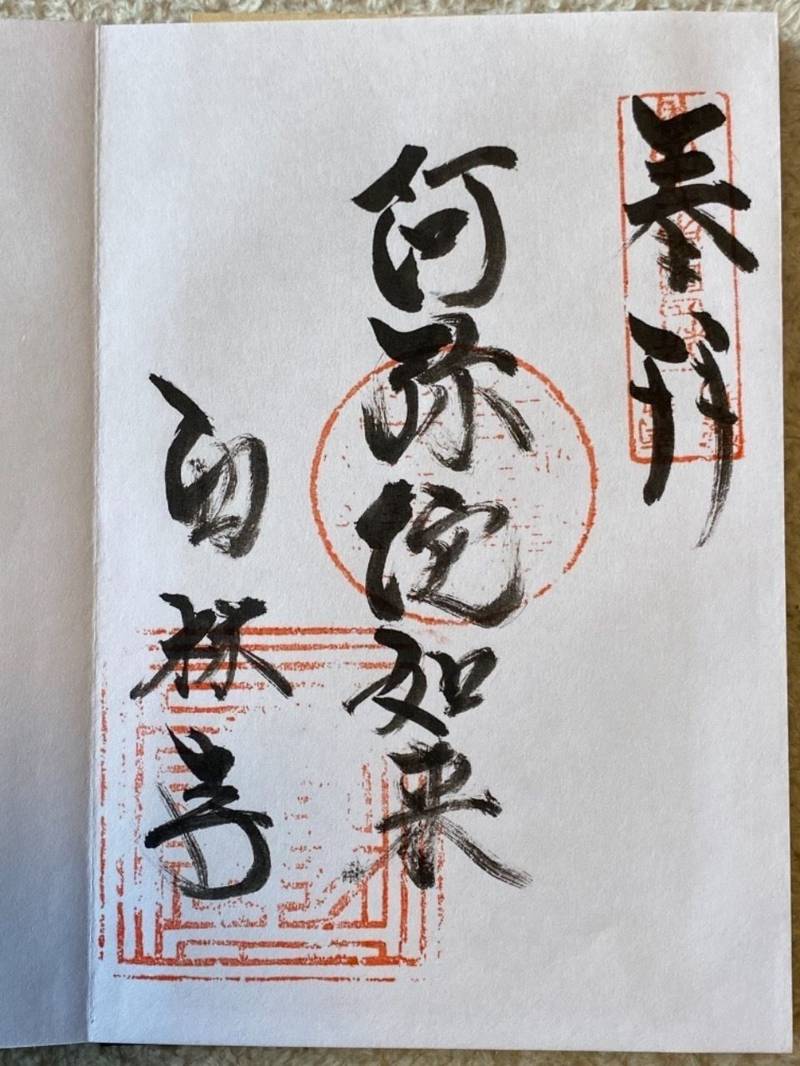 奉拝
阿弥陀如来
白林寺